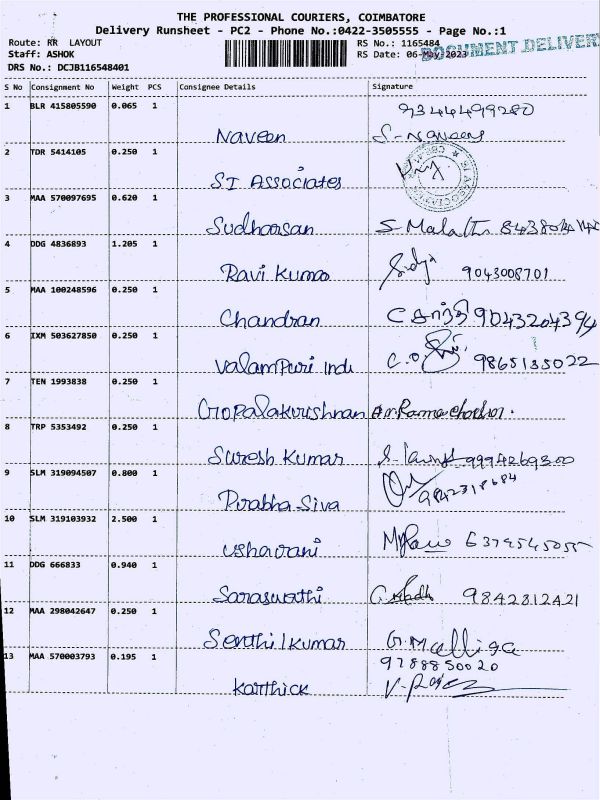 THE PROFESSIONAL COURIERS, COIMBATORE
Delivery Runsheet - PC2 - Phone No.:0422-3505555 - Page No.:1
Route: RR LAYOUT RS No.: 1165484
Staff: ASHOK RS Date: 06-May-2023
DOCUMENT DELIVERY
DRS No.: DCJB116548401
S No Consignment No Weight PCS Consignee Details Signature
1 BLR 415805590 0.065 1 9344499280
Naveen S-Naveen
2 TDR 5414105 0.250 1
S.I Associates
3 MAA 570097695 0.620 1
Sudharsan S. Malathi
4 DDG 4836893 1.205 1
Ravi Kumar 9043008701
5 MAA 100248596 0.250 1
Chandran C சாந்தி 9043204394
6 IXM 503627850 0.250 1
Valampuri Indu 9865135022
7 TEN 1993838 0.250 1
Gopalakrishnan
8 TRP 5353492 0.250 1
Suresh Kumar 9994269300
9 SLM 319094507 0.800 1
Prabha Siva 9842318684
10 SLM 319103932 2.500 1
Usharani 6379545055
11 DDG 666833 0.940 1
Saraswathi 9842812421
12 MAA 298042647 0.250 1
Senthilkumar G. Malliga
13 MAA 570003793 0.195 1 9788850020
Karthick